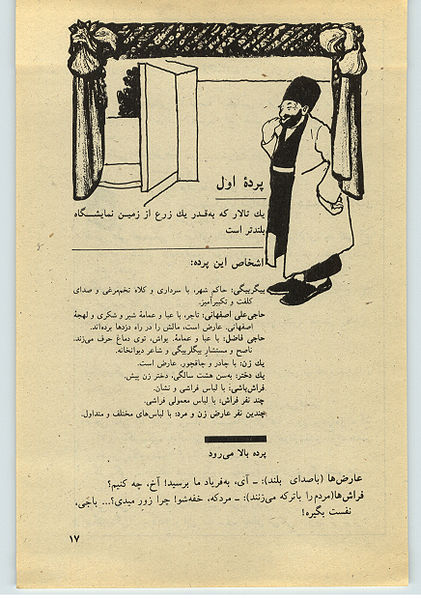 پردهٔ اول
یك تالار که به‌قدر یك زرع از زمین نمایشگاه
بلندتر است
اشخاص این پرده:
بیگلربیگی: حاکم شهر، با سرداری و کلاه تخم‌مرغی و صدای
کلفت و تکبرآمیز.
حاجی‌علی اصفهانی: تاجر، با عبا و عمامهٔ شیر و شکری و لهجهٔ
اصفهانی. عارض است، مالش را در راه دزدها برده‌اند.
حاجی فاضل: با عبا و عمامهٔ. یواش، توی دماغ حرف می‌زند.
ناصح و مستشار بیگلربیگی و شاعر دیوانخانه.
یك زن: با چادر و چاقچور. عارض است.
یك دختر: به‌سن هشت سالگی، دختر زن پیش.
فراش‌باشی: با لباس فراشی و نشان.
چند نفر فراش: با لباس معمولی فراشی.
چندین نفر عارض زن و مرد: با لباس‌های مختلف و متداول.
پرده بالا می‌رود
عارض‌ها (باصدای بلند): ـ آی، به‌فریاد ما برسید! آخ، چه کنیم؟
فراش‌ها(مردم را باترکه می‌زنند): ـ مردکه، خفه‌شو! چرا زور میدی؟... باجی،
نفست بگیره!
۱۷